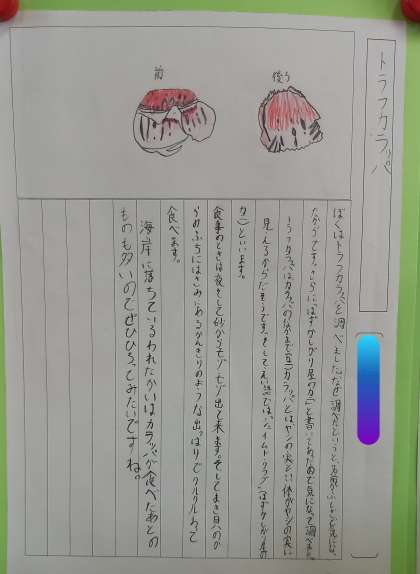 トラフカラッパ
前
後ろ
ぼくはトラフカラッパを調べました。なぜ調べたというと、名前がふしぎで気にな
ったからです。さらに「はずかしがり屋のカニ」と書いてあったので気になって調べました。
トラフカラッパはカラッパのなかまで、カラッパとはヤシの実という体がヤシの実に
見えるからだそうです。そして英語では「シェイムドクラブ」はずかしがり屋の
カニといいます。
食事のときは夜をして砂からモゾモゾ出て来ます。そしてまき貝のか
らのふちにはさみにあるかんきりのような出っぱりでクルクルわって
食べます。
海岸に落ちているわれたかいはカラッパが食べたあとの
ものも多いのでぜひひろってみたいですね。